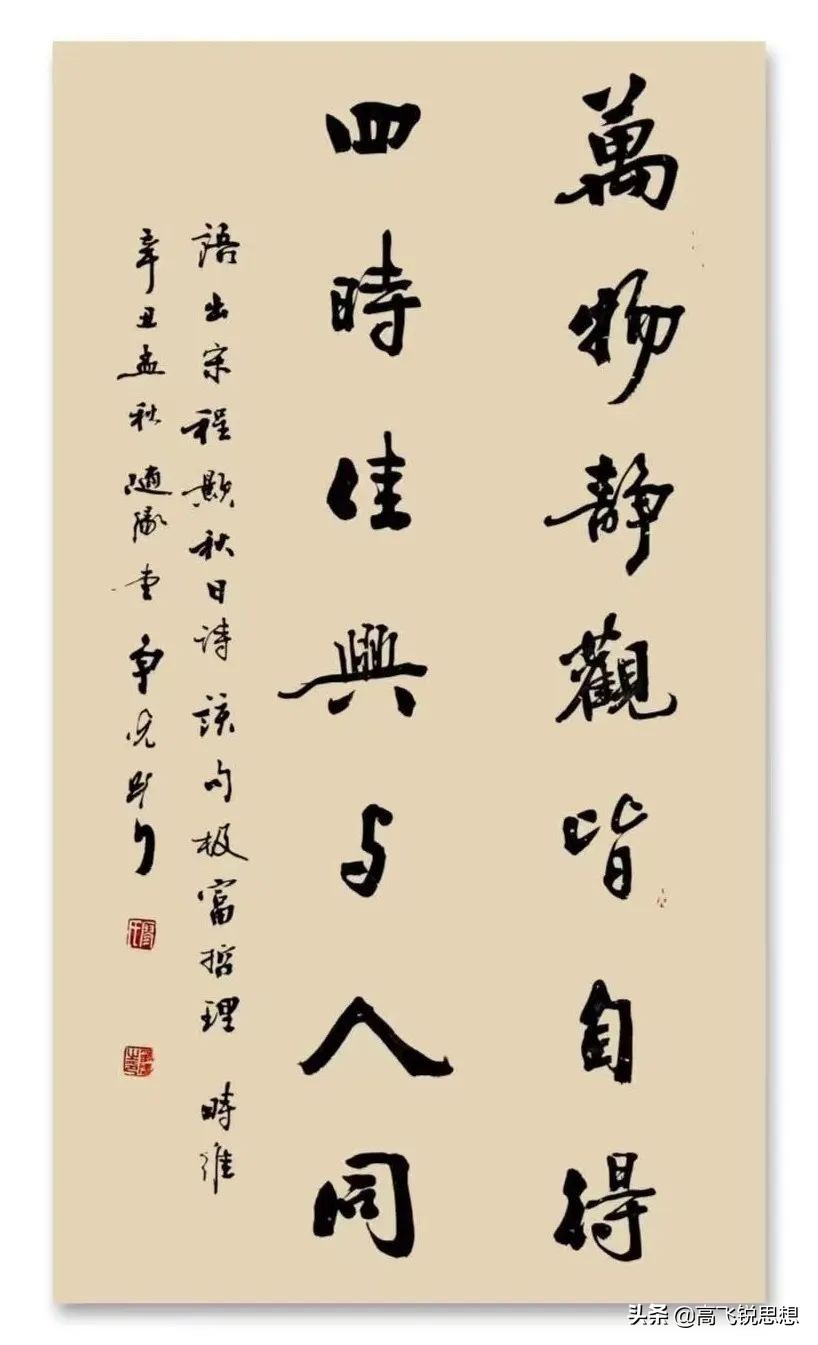 萬物靜觀皆自得
四時佳興与人同
語出宋程顥秋日詩該句极富哲理 時維
辛丑孟秋隨緣堂
头条 @高飞锐思想